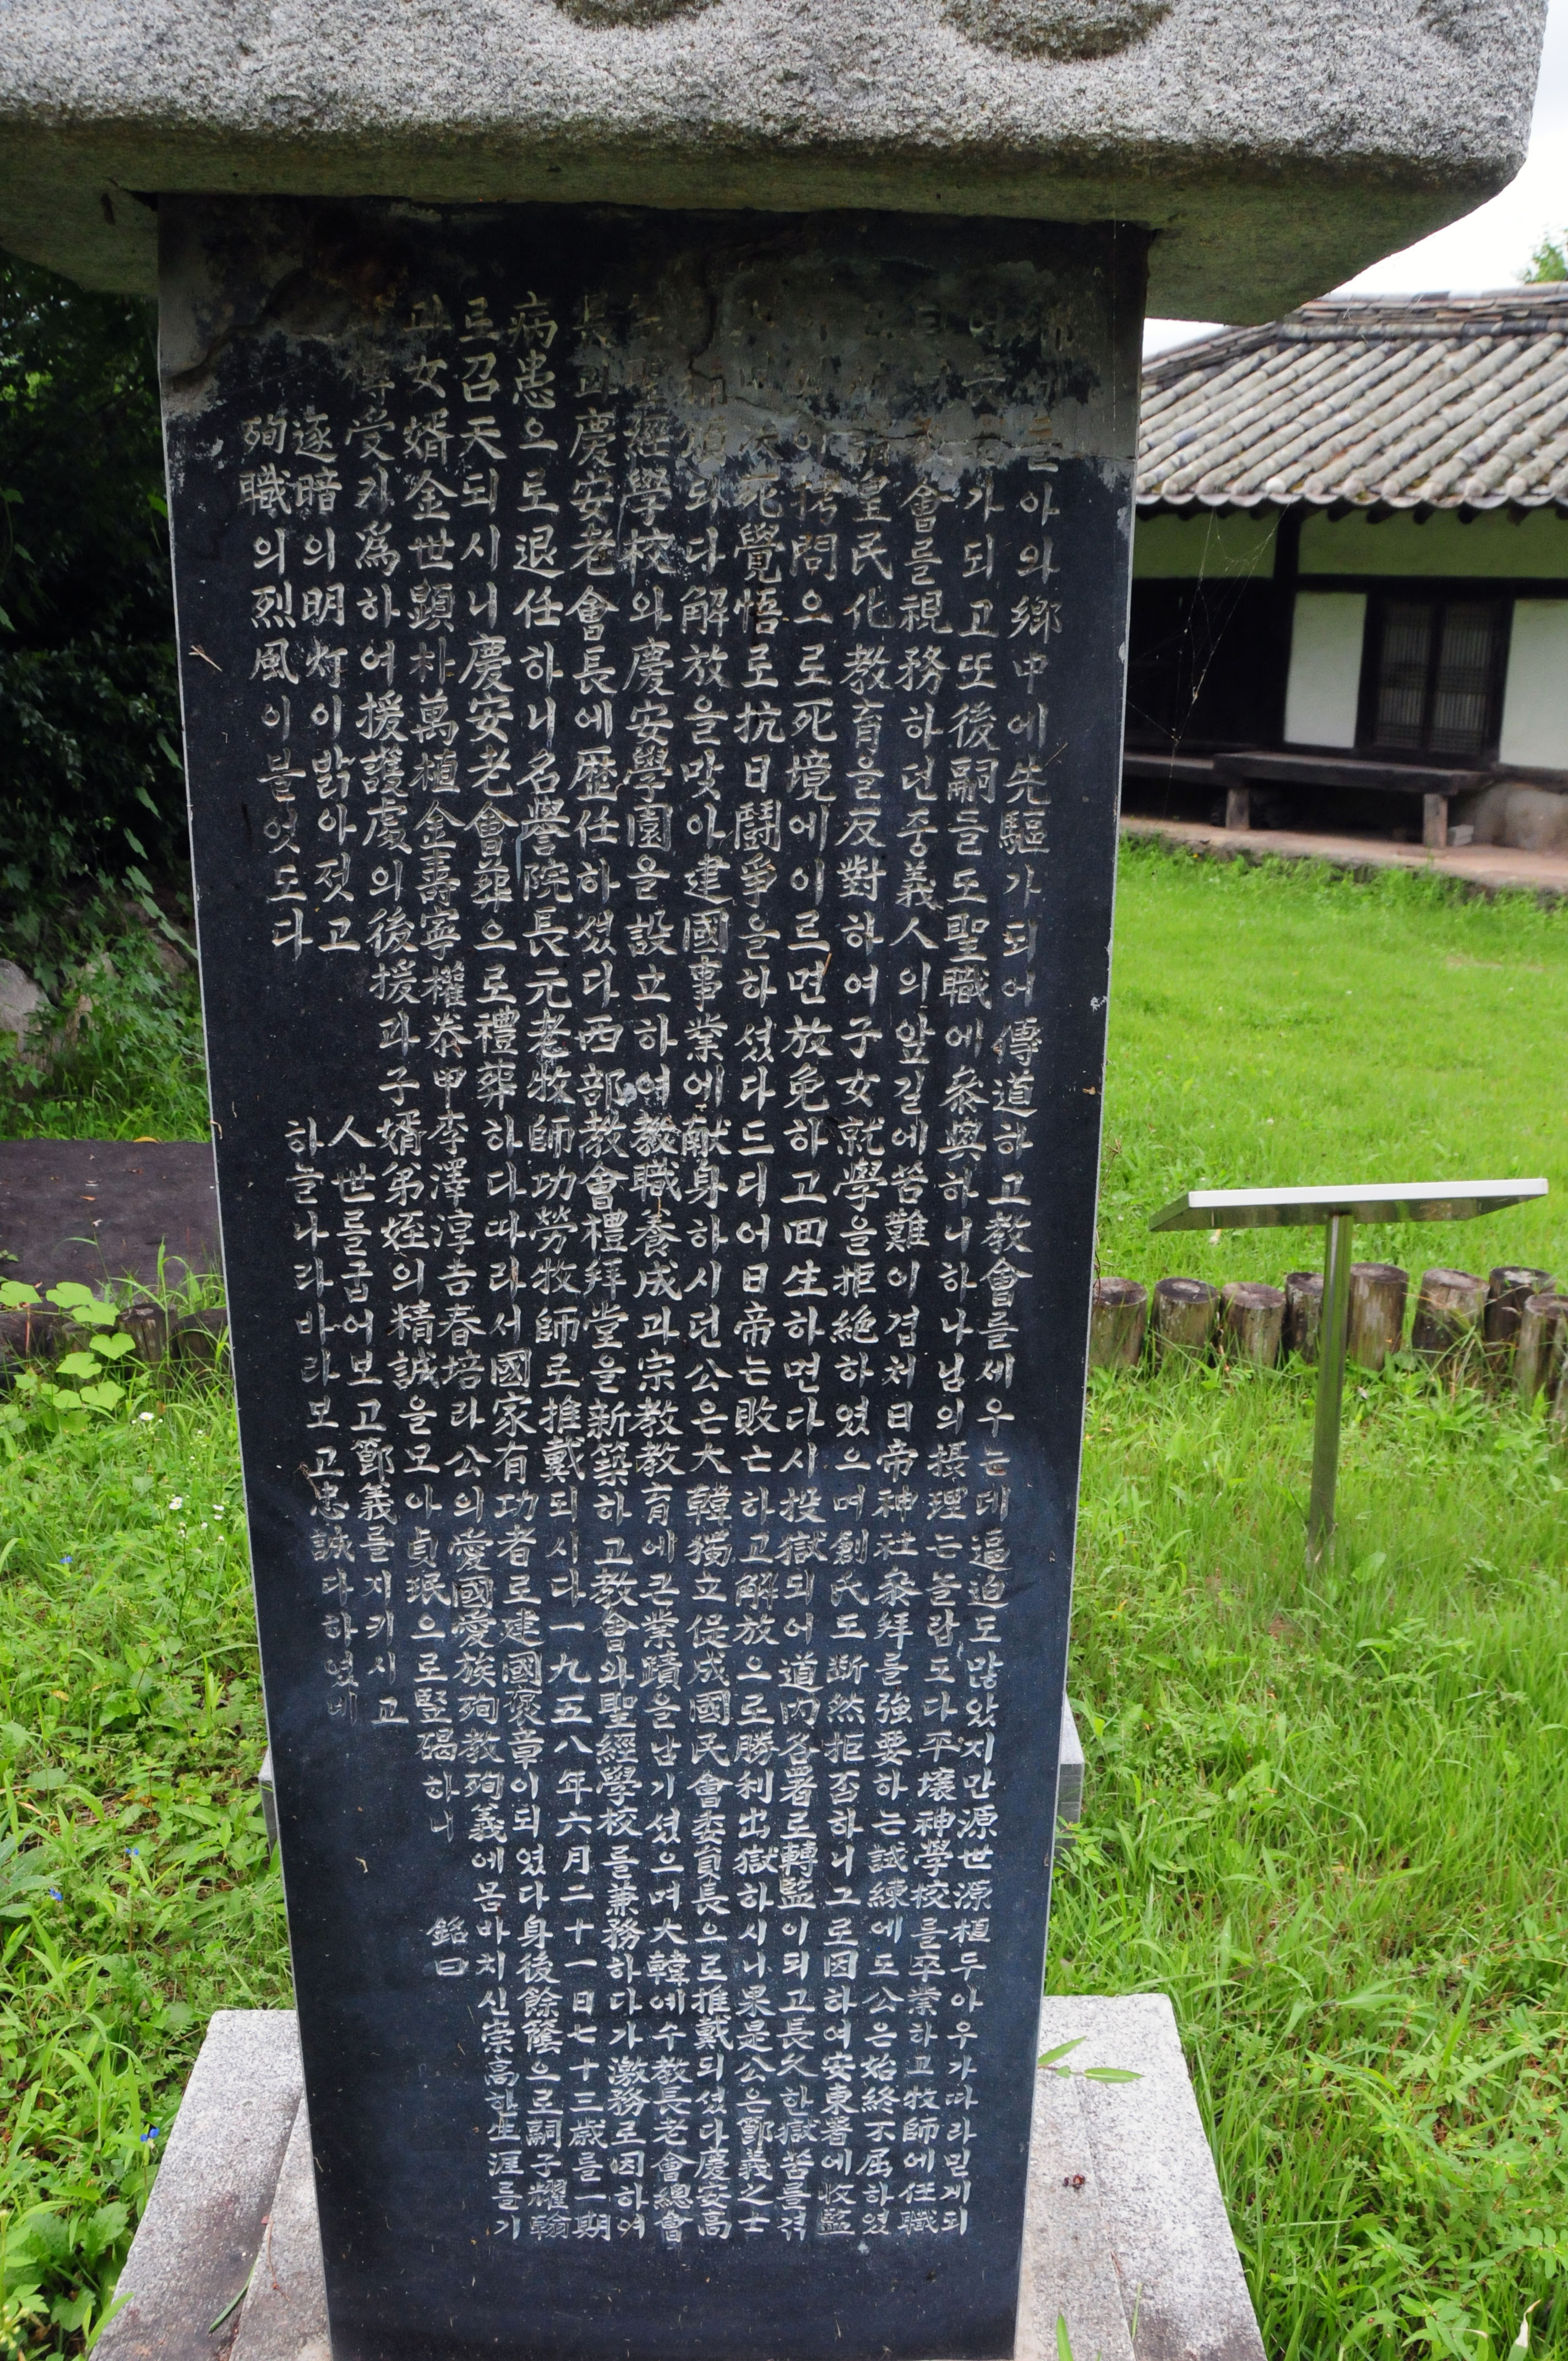 아와鄕中에先驅가되어傳道하고敎會를세우는데逼迫도많았지만源世源植두아우가따라믿게되
가되고또後嗣들도聖職에參與하니하나님의攝理는놀랍도다平壤神學校를卒業하고牧師에任職
會를視務하던중義人의앞길에苦難이겹처日帝神社參拜를强要하는試練에도公은始終不屈하였
皇民化敎育을反對하여子女就學을拒絶하였으며創氏도斷然拒否하니그로因하여安東署에收監
拷問으로死境에이르면放免하고回生하면다시投獄되어道內各署로轉監이되고長久한獄苦를겪
死覺悟로抗日鬪爭을하셨다드디어日帝는敗亡하고解放으로勝利出獄하시니果是公은節義之士
되다解放을맞아建國事業에献身하시던公은大韓獨立促成國民會委員長으로推戴되셨다慶安高
聖經學校와慶安學園을設立하여敎職養成과宗敎敎育에큰業蹟을남기셨으며大韓예수敎長老會總會
長과慶安老會長에歷任하셨다西部敎會禮拜堂을新築하고敎會와聖經學校를兼務하다가激務로因하여
病患으로退任하니名譽院長元老牧師功勞牧師로推戴되시다一九五八年六月二十一日七十三歲를一期
로召天되시니慶安老會葬으로禮葬하다따라서國家有功者로建國褒章이되였다身後餘蔭으로嗣子耀翰
과女婿金世顯朴萬植金壽寧權泰甲李澤淳吉春培라公의愛國愛族殉敎殉義에몸바치신崇高한生涯를기
傳受키爲하여援護處의後援과子婿弟姪의精誠을모아貞珉으로竪碣하니 銘曰
逐暗의明灯이밝아젓고 人世를굽어보고節義를지키시고
殉職의烈風이불엇도다 하늘나라바라보고忠誠다하였네